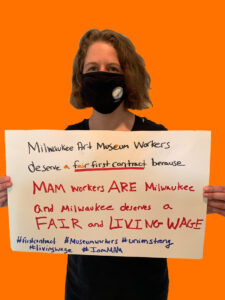 Milwaukee Art Museum Workers
deserve a fair first contract because
MAM workers ARE Milwaukee
and Milwaukee deserves a
FAIR and LIVING WAGE
#firstcontract #Museumworkers #unionstrong
#livingwage #IamMAM